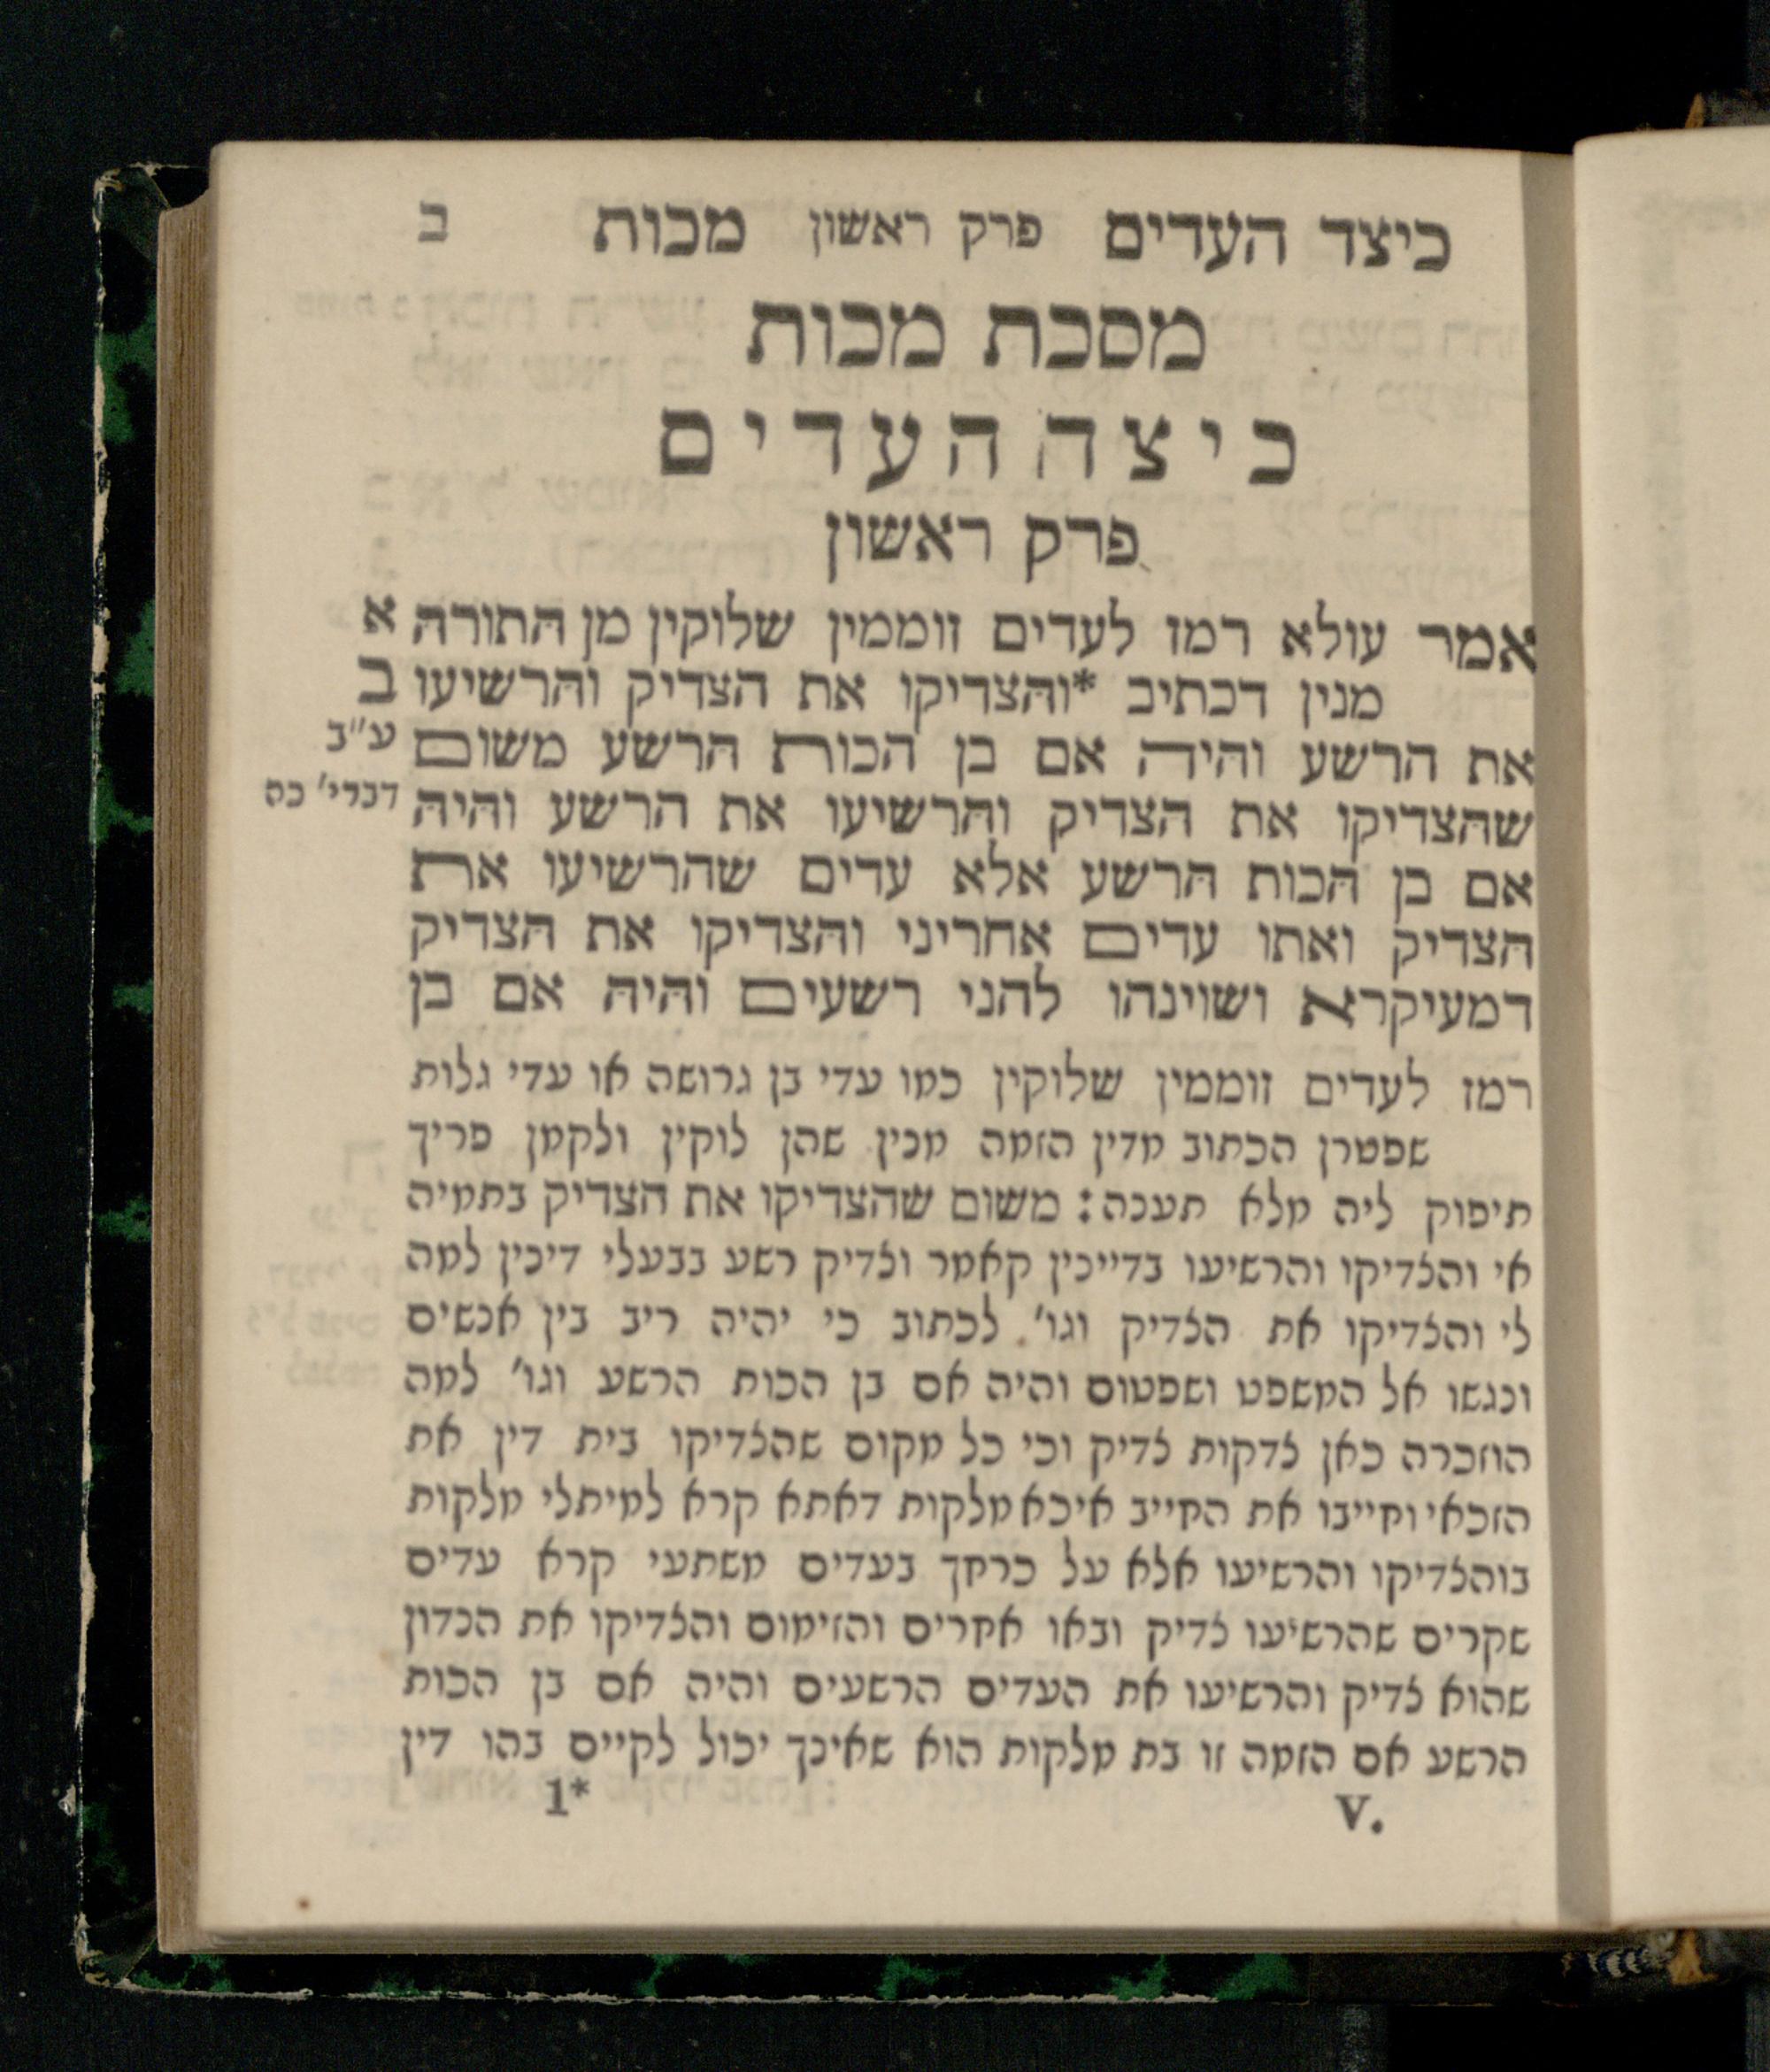 כיצד העדים פרק ראשון מכות ב
מסכת מכות
כיצה העדים
פרק ראשון
אמר עולא רמז לעדים זוממין שלוקין מן התורה א
מנין דכתיב *והצדיקו את הצדיק והרשיעו ב
את הרשע והיה אם בן הכות הרשע משום ע"ב
שהצדיקו את הצדיק והרשיעו את הרשע והיה דברי' כה
אם בן הכות הרשע אלא עדים שהרשיעו את
הצדיק ואתו עדים אחריני והצדיקו את הצדיק
דמעיקרא ושוינהו להני רשעים והיה אם בן
רמז לעדים זוממין שלוקין כמו עדי בן גרושה או עדי גלות
שפטרן הכתוב מדין הזמה מנין שהן לוקין ולקמן פריך
תיפוק ליה מלא תענה: משום שהצדיקו את הצדיק בתמיה
אי והצדיקו והרשיעו בדיינין קאמר וצדיק רשע בבעלי דינין למה
לי והצדיקו את הצדיק וגו'. לכתוב כי יהיה ריב בין אנשים
ונגשו אל המשפט ושפטום והיה אם בן הכות הרשע וגו' למה
הוזכרה כאן צדקות צדיק וכי כל מקום שהצדיקו בית דין את
הזכאי וחייבו את החייב איכא מלקות דאתא קרא למיתלי מלקות
בוהצדיקו והרשיעו אלא על כרחך בעדים משתעי קרא עדים
שקרים שהרשיעו צדיק ובאו אחרים והזימום והצדיקו את הנדון
שהוא צדיק והרשיעו את העדים הרשעים והיה אם בן הכות
הרשע אם הזמה זו בת מלקות הוא שאינך יכול לקיים בהו דין
V. 1*